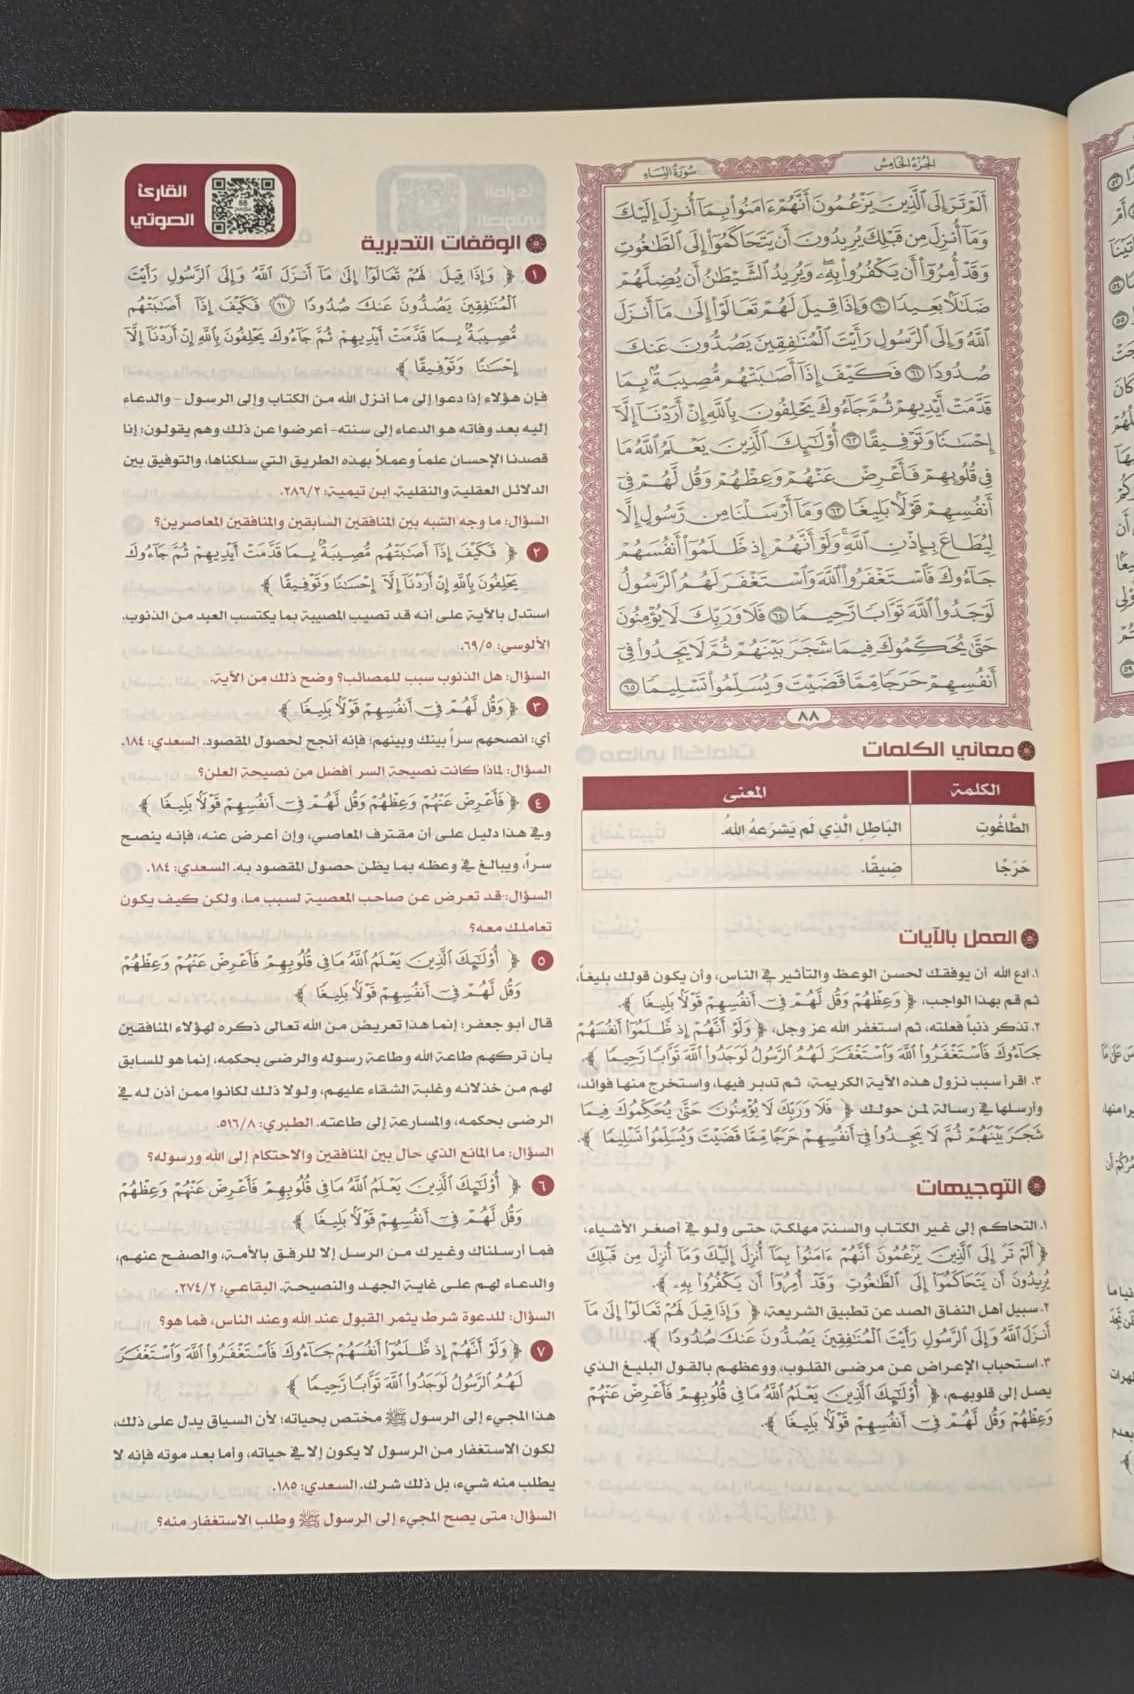 الجزء الخامس
سورة النساء
أَلَمْ تَرَ إِلَى الَّذِينَ يَزْعُمُونَ أَنَّهُمْ ءَامَنُوا بِمَا أُنزِلَ إِلَيْكَ
وَمَا أُنزِلَ مِن قَبْلِكَ يُرِيدُونَ أَن يَتَحَاكَمُوا إِلَى الطَّاغُوتِ
وَقَدْ أُمِرُوا أَن يَكْفُرُوا بِهِ وَيُرِيدُ الشَّيْطَانُ أَن يُضِلَّهُمْ
ضَلَالًا بَعِيدًا ٦٠ وَإِذَا قِيلَ لَهُمْ تَعَالَوْا إِلَىٰ مَا أَنزَلَ
اللَّهُ وَإِلَى الرَّسُولِ رَأَيْتَ الْمُنَافِقِينَ يَصُدُّونَ عَنكَ
صُدُودًا ٦١ فَكَيْفَ إِذَا أَصَابَتْهُم مُّصِيبَةٌ بِمَا
قَدَّمَتْ أَيْدِيهِمْ ثُمَّ جَاءُوكَ يَحْلِفُونَ بِاللَّهِ إِنْ أَرَدْنَا إِلَّا
إِحْسَانًا وَتَوْفِيقًا ٦٢ أُولَٰئِكَ الَّذِينَ يَعْلَمُ اللَّهُ مَا
فِي قُلُوبِهِمْ فَأَعْرِضْ عَنْهُمْ وَعِظْهُمْ وَقُل لَّهُمْ فِي
أَنفُسِهِمْ قَوْلًا بَلِيغًا ٦٣ وَمَا أَرْسَلْنَا مِن رَّسُولٍ إِلَّا
لِيُطَاعَ بِإِذْنِ اللَّهِ وَلَوْ أَنَّهُمْ إِذ ظَّلَمُوا أَنفُسَهُمْ
جَاءُوكَ فَاسْتَغْفَرُوا اللَّهَ وَاسْتَغْفَرَ لَهُمُ الرَّسُولُ
لَوَجَدُوا اللَّهَ تَوَّابًا رَّحِيمًا ٦٤ فَلَا وَرَبِّكَ لَا يُؤْمِنُونَ
حَتَّىٰ يُحَكِّمُوكَ فِيمَا شَجَرَ بَيْنَهُمْ ثُمَّ لَا يَجِدُوا فِي
أَنفُسِهِمْ حَرَجًا مِّمَّا قَضَيْتَ وَيُسَلِّمُوا تَسْلِيمًا ٦٥
٨٨
معاني الكلمات
الكلمة المعنى
الطَّاغُوتِ البَاطِلِ الَّذِي لَم يَشرَعهُ اللهُ.
حَرَجًا ضِيقًا.
العمل بالآيات
١. ادع الله أن يوفقك لحسن الوعظ والتأثير في الناس، وأن يكون قولك بليغاً،
ثم قم بهذا الواجب، ﴿ وَعِظْهُمْ وَقُل لَّهُمْ فِي أَنفُسِهِمْ قَوْلًا بَلِيغًا ﴾.
٢. تذكر ذنباً فعلته، ثم استغفر الله عز وجل، ﴿ وَلَوْ أَنَّهُمْ إِذ ظَّلَمُوا أَنفُسَهُمْ
جَاءُوكَ فَاسْتَغْفَرُوا اللَّهَ وَاسْتَغْفَرَ لَهُمُ الرَّسُولُ لَوَجَدُوا اللَّهَ تَوَّابًا رَّحِيمًا ﴾.
٣. اقرأ سبب نزول هذه الآية الكريمة، ثم تدبر فيها، واستخرج منها فوائد،
وأرسلها في رسالة لمن حولك ﴿ فَلَا وَرَبِّكَ لَا يُؤْمِنُونَ حَتَّىٰ يُحَكِّمُوكَ فِيمَا
شَجَرَ بَيْنَهُمْ ثُمَّ لَا يَجِدُوا فِي أَنفُسِهِمْ حَرَجًا مِّمَّا قَضَيْتَ وَيُسَلِّمُوا تَسْلِيمًا ﴾.
التوجيهات
١. التحاكم إلى غير الكتاب والسنة مهلكة، حتى ولو في أصغر الأشياء،
﴿ أَلَمْ تَرَ إِلَى الَّذِينَ يَزْعُمُونَ أَنَّهُمْ ءَامَنُوا بِمَا أُنزِلَ إِلَيْكَ وَمَا أُنزِلَ مِن قَبْلِكَ
يُرِيدُونَ أَن يَتَحَاكَمُوا إِلَى الطَّاغُوتِ وَقَدْ أُمِرُوا أَن يَكْفُرُوا بِهِ ﴾.
٢. سبيل أهل النفاق الصد عن تطبيق الشريعة، ﴿ وَإِذَا قِيلَ لَهُمْ تَعَالَوْا إِلَىٰ مَا
أَنزَلَ اللَّهُ وَإِلَى الرَّسُولِ رَأَيْتَ الْمُنَافِقِينَ يَصُدُّونَ عَنكَ صُدُودًا ﴾.
٣. استحباب الإعراض عن مرضى القلوب، ووعظهم بالقول البليغ الذي
يصل إلى قلوبهم، ﴿ أُولَٰئِكَ الَّذِينَ يَعْلَمُ اللَّهُ مَا فِي قُلُوبِهِمْ فَأَعْرِضْ عَنْهُمْ
وَعِظْهُمْ وَقُل لَّهُمْ فِي أَنفُسِهِمْ قَوْلًا بَلِيغًا ﴾.
القارئ
الصوتي
88
الوقفات التدبرية
١ ﴿ وَإِذَا قِيلَ لَهُمْ تَعَالَوْا إِلَىٰ مَا أَنزَلَ اللَّهُ وَإِلَى الرَّسُولِ رَأَيْتَ
الْمُنَافِقِينَ يَصُدُّونَ عَنكَ صُدُودًا ٦١ فَكَيْفَ إِذَا أَصَابَتْهُم
مُّصِيبَةٌ بِمَا قَدَّمَتْ أَيْدِيهِمْ ثُمَّ جَاءُوكَ يَحْلِفُونَ بِاللَّهِ إِنْ أَرَدْنَا إِلَّا
إِحْسَانًا وَتَوْفِيقًا ﴾
فإن هؤلاء إذا دعوا إلى ما أنزل الله من الكتاب وإلى الرسول - والدعاء
إليه بعد وفاته هو الدعاء إلى سنته- أعرضوا عن ذلك وهم يقولون: إنا
قصدنا الإحسان علماً وعملاً بهذه الطريق التي سلكناها، والتوفيق بين
الدلائل العقلية والنقلية. ابن تيمية: ٢٨٦/٢.
السؤال: ما وجه الشبه بين المنافقين السابقين والمنافقين المعاصرين؟
٢ ﴿ فَكَيْفَ إِذَا أَصَابَتْهُم مُّصِيبَةٌ بِمَا قَدَّمَتْ أَيْدِيهِمْ ثُمَّ جَاءُوكَ
يَحْلِفُونَ بِاللَّهِ إِنْ أَرَدْنَا إِلَّا إِحْسَانًا وَتَوْفِيقًا ﴾
استدل بالآية على أنه قد تصيب المصيبة بما يكتسب العبد من الذنوب.
الألوسي: ٦٩/٥.
السؤال: هل الذنوب سبب للمصائب؟ وضح ذلك من الآية.
٣ ﴿ وَقُل لَّهُمْ فِي أَنفُسِهِمْ قَوْلًا بَلِيغًا ﴾
أي: انصحهم سراً بينك وبينهم؛ فإنه أنجح لحصول المقصود. السعدي: ١٨٤.
السؤال: لماذا كانت نصيحة السر أفضل من نصيحة العلن؟
٤ ﴿ فَأَعْرِضْ عَنْهُمْ وَعِظْهُمْ وَقُل لَّهُمْ فِي أَنفُسِهِمْ قَوْلًا بَلِيغًا ﴾
وفي هذا دليل على أن مقترف المعاصي، وإن أعرض عنه، فإنه ينصح
سراً، ويبالغ في وعظه بما يظن حصول المقصود به. السعدي: ١٨٤.
السؤال: قد تعرض عن صاحب المعصية لسبب ما، ولكن كيف يكون
تعاملك معه؟
٥ ﴿ أُولَٰئِكَ الَّذِينَ يَعْلَمُ اللَّهُ مَا فِي قُلُوبِهِمْ فَأَعْرِضْ عَنْهُمْ وَعِظْهُمْ
وَقُل لَّهُمْ فِي أَنفُسِهِمْ قَوْلًا بَلِيغًا ﴾
قال أبو جعفر: إنما هذا تعريض من الله تعالى ذكره لهؤلاء المنافقين
بأن تركهم طاعة الله وطاعة رسوله والرضى بحكمه، إنما هو للسابق
لهم من خذلانه وغلبة الشقاء عليهم، ولولا ذلك لكانوا ممن أذن له في
الرضى بحكمه، والمسارعة إلى طاعته. الطبري: ٥١٦/٨.
السؤال: ما المانع الذي حال بين المنافقين والاحتكام إلى الله ورسوله؟
٦ ﴿ أُولَٰئِكَ الَّذِينَ يَعْلَمُ اللَّهُ مَا فِي قُلُوبِهِمْ فَأَعْرِضْ عَنْهُمْ وَعِظْهُمْ
وَقُل لَّهُمْ فِي أَنفُسِهِمْ قَوْلًا بَلِيغًا ﴾
فما أرسلناك وغيرك من الرسل إلا للرفق بالأمة، والصفح عنهم،
والدعاء لهم على غاية الجهد والنصيحة. البقاعي: ٢٧٤/٢.
السؤال: للدعوة شرط يثمر القبول عند الله وعند الناس، فما هو؟
٧ ﴿ وَلَوْ أَنَّهُمْ إِذ ظَّلَمُوا أَنفُسَهُمْ جَاءُوكَ فَاسْتَغْفَرُوا اللَّهَ وَاسْتَغْفَرَ
لَهُمُ الرَّسُولُ لَوَجَدُوا اللَّهَ تَوَّابًا رَّحِيمًا ﴾
هذا المجيء إلى الرسول ﷺ مختص بحياته؛ لأن السياق يدل على ذلك،
لكون الاستغفار من الرسول لا يكون إلا في حياته، وأما بعد موته فإنه لا
يطلب منه شيء، بل ذلك شرك. السعدي: ١٨٥.
السؤال: متى يصح المجيء إلى الرسول ﷺ وطلب الاستغفار منه؟